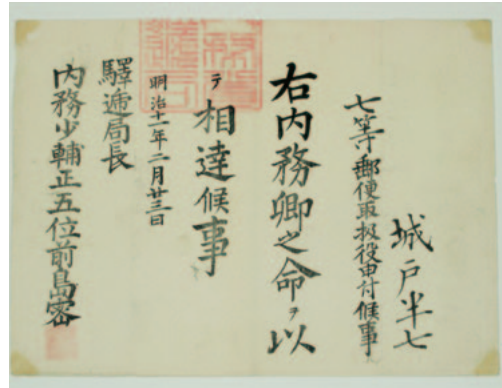 城戸半七
七等郵便取扱役申付候事
右内務卿之命ヲ以
テ相達候事
明治十一年二月廿三日
驛逓局長
内務少輔正五位前島密